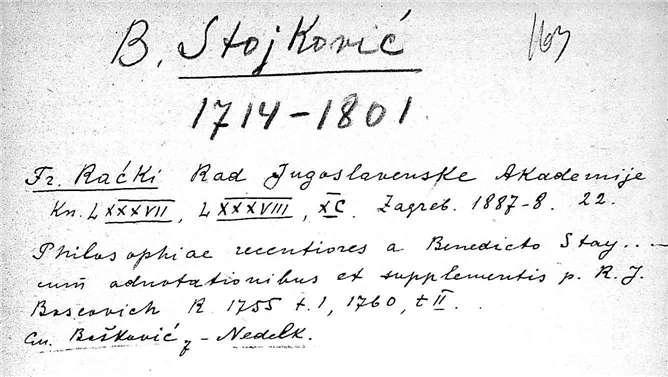 B. Stojković 163
1714-1801
Fr. Rački Rad Jugoslavenske Akademije
Kn. LXXXVII, LXXXVIII, XC. Zagreb. 1887-8. 22.
Philosophiae recentiores a Benedicto Stay...
cum adnotationibus et supplementis p. R. J.
Boscovich R 1755 t.1, 1760, t II.
Bošković - Nedelk.